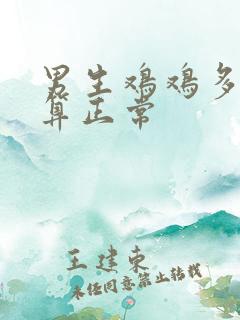 男生鸡鸡多
算正常
王建东
未经同意禁止转载